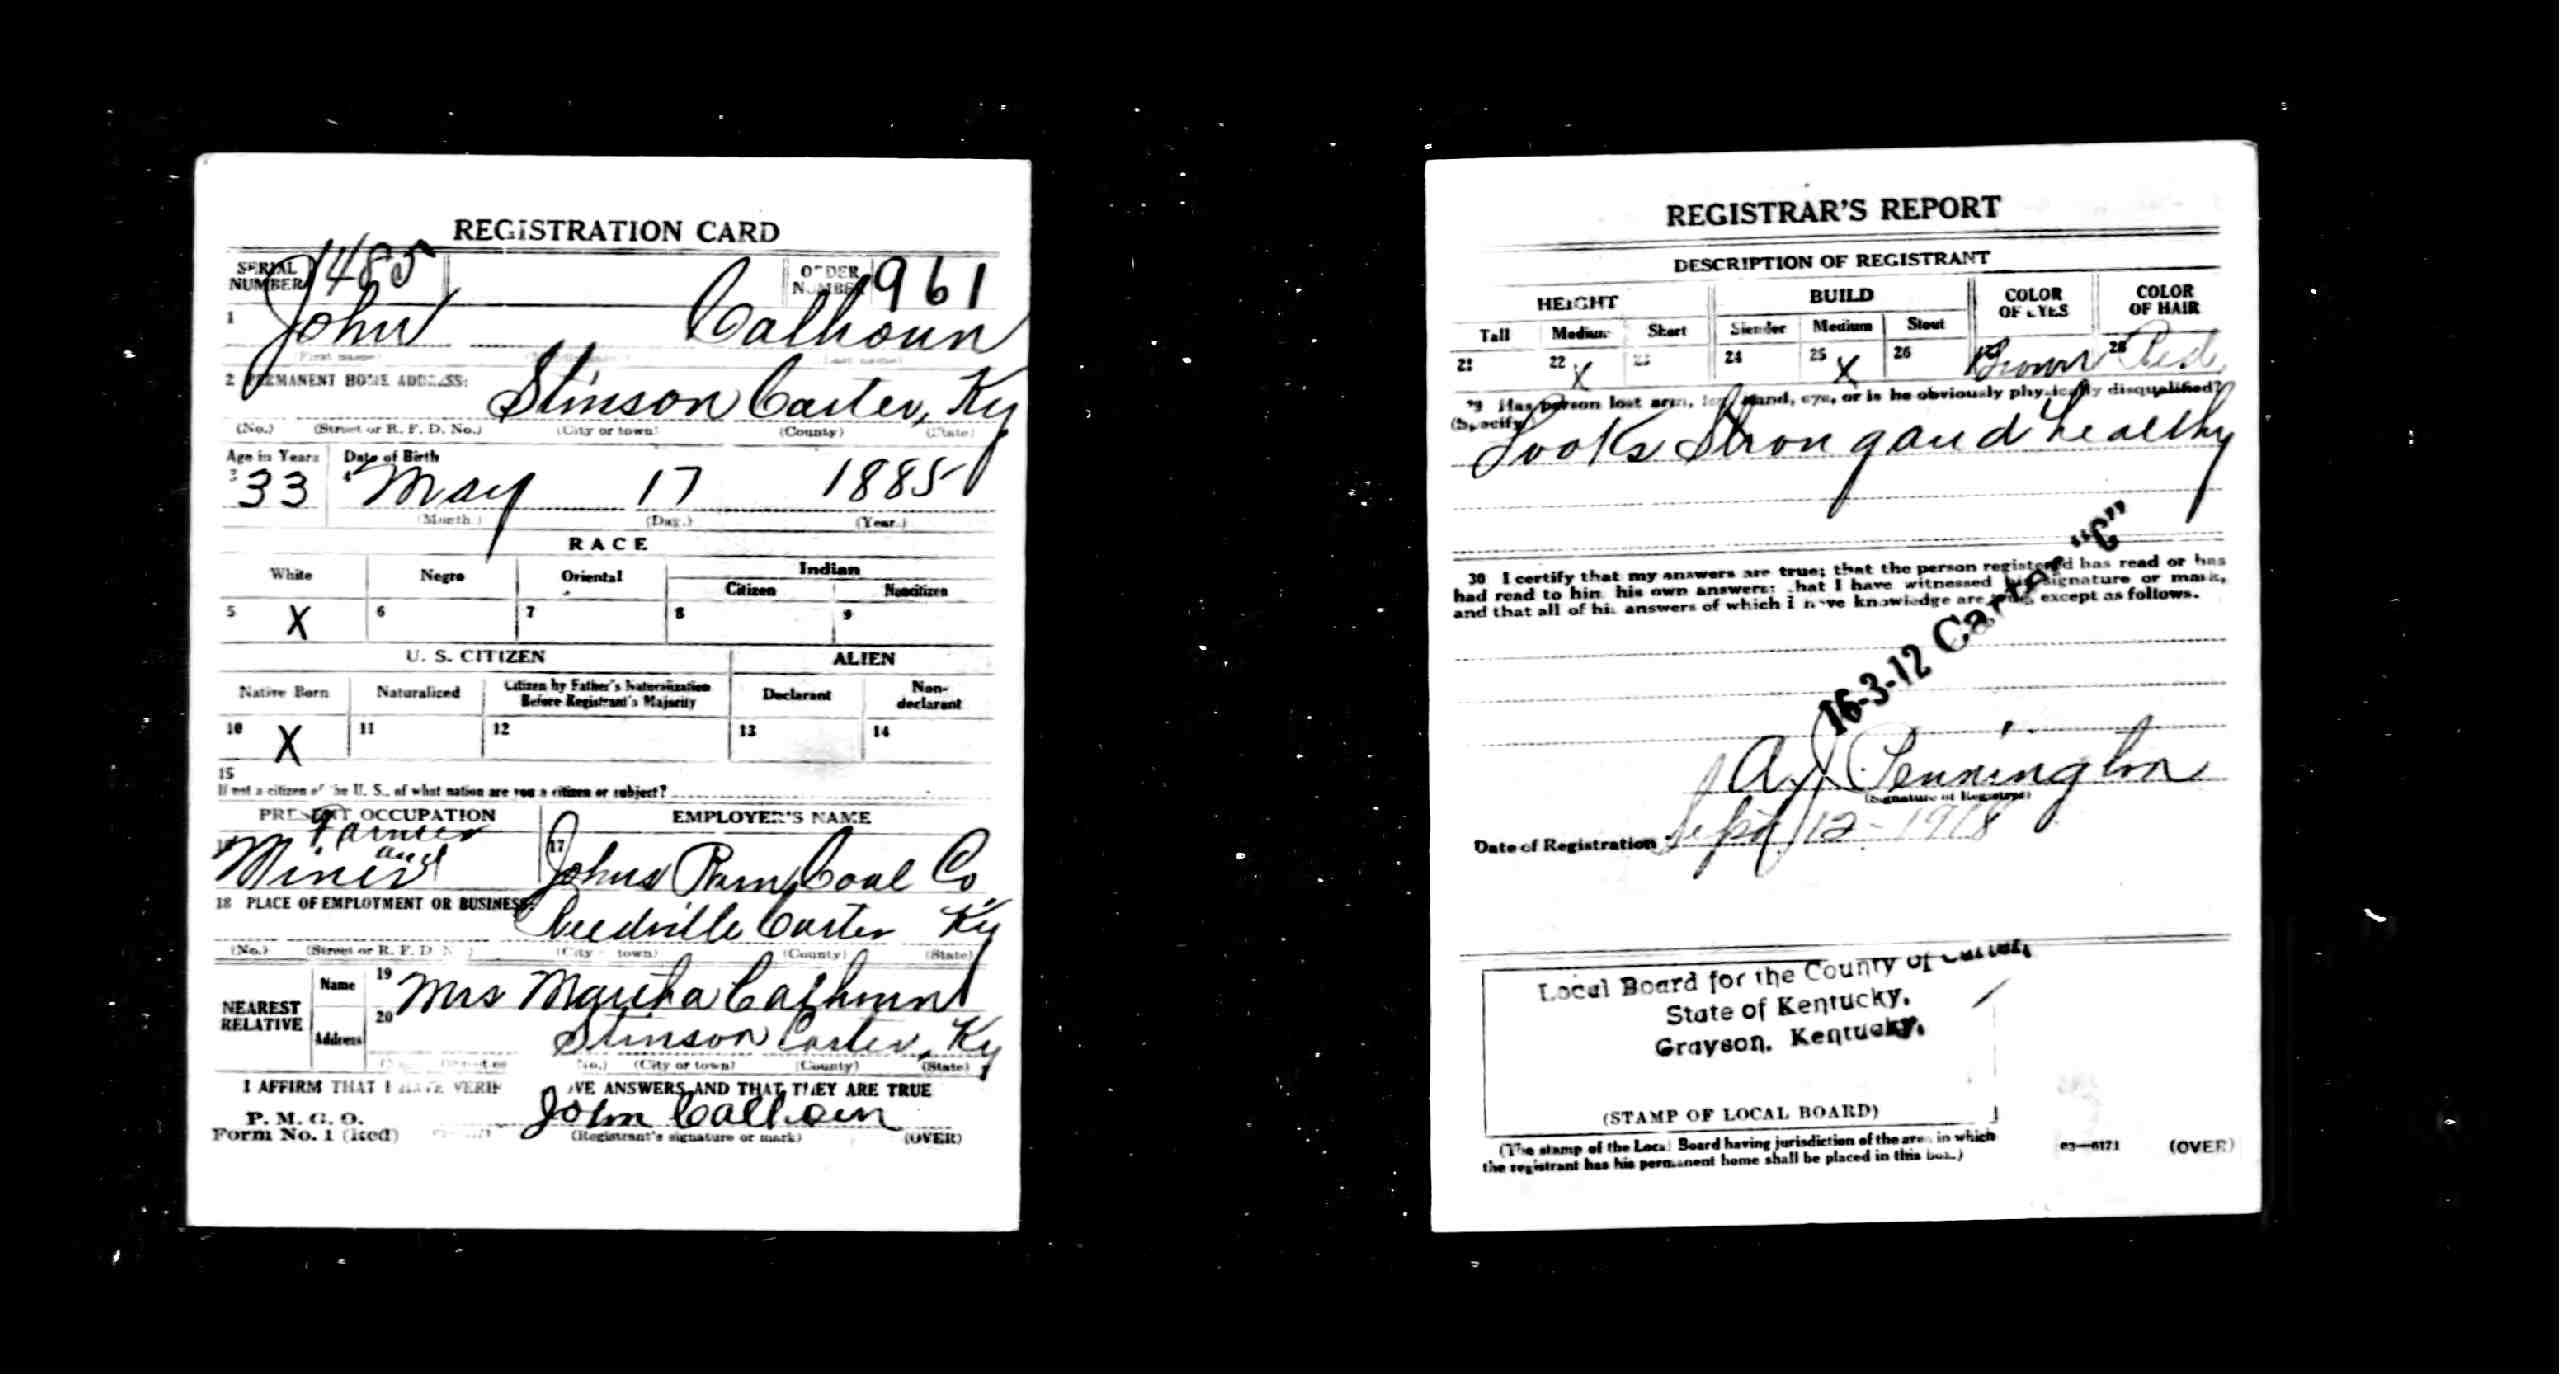 REGISTRATION CARD
SERIAL NUMBER 1485 ORDER NUMBER 961
1 John Calhoun
(First name) (Last name)
2 PERMANENT HOME ADDRESS:
Stinson Carter, Ky
(No.) (Street or R. F. D. No.) (City or town) (County) (State)
Age in Years Date of Birth
3 33 4 May 17 1885
(Month.) (Day.) (Year.)
RACE
White Negro Oriental Indian
Citizen Noncitizen
5 X 6 7 8 9
U. S. CITIZEN ALIEN
Native Born Naturalized Citizen by Father's Naturalization Before Registrant's Majority Declarant Non-declarant
10 X 11 12 13 14
15
If not a citizen of the U. S., of what nation are you a citizen or subject?
PRESENT OCCUPATION EMPLOYER'S NAME
Farmer
and
Miner 17 Johns Coal Co
18 PLACE OF EMPLOYMENT OR BUSINESS:
Carter Ky
(No.) (Street or R. F. D. No.) (City or town) (County) (State)
NEAREST RELATIVE
Name 19 Mrs Martha Calhoun
Address 20 Stinson Carter, Ky
(No.) (City or town) (County) (State)
I AFFIRM THAT I HAVE VERIF VE ANSWERS AND THAT THEY ARE TRUE
P. M. G. O.
Form No. 1 (Red) John Calhoun
(Registrant's signature or mark) (OVER)
REGISTRAR'S REPORT
DESCRIPTION OF REGISTRANT
HEIGHT BUILD COLOR OF EYES COLOR OF HAIR
Tall Medium Short Slender Medium Stout
21 22 X 23 24 25 X 26 27 Brown 28 Red
29 Has person lost arm, leg, hand, eye, or is he obviously physically disqualified?
(Specify)
Looks Strong and healthy
30 I certify that my answers are true; that the person registered has read or has
had read to him his own answers; that I have witnessed his signature or mark,
and that all of his answers of which I have knowledge are true, except as follows.
16-3-12 Carter "C"
A J Pennington
(Signature of Registrar)
Date of Registration Sept 12-1918
Local Board for the County of Carter,
State of Kentucky,
Grayson, Kentucky.
(STAMP OF LOCAL BOARD)
(The stamp of the Local Board having jurisdiction of the area in which
the registrant has his permanent home shall be placed in this box.)
03—6171 (OVER)